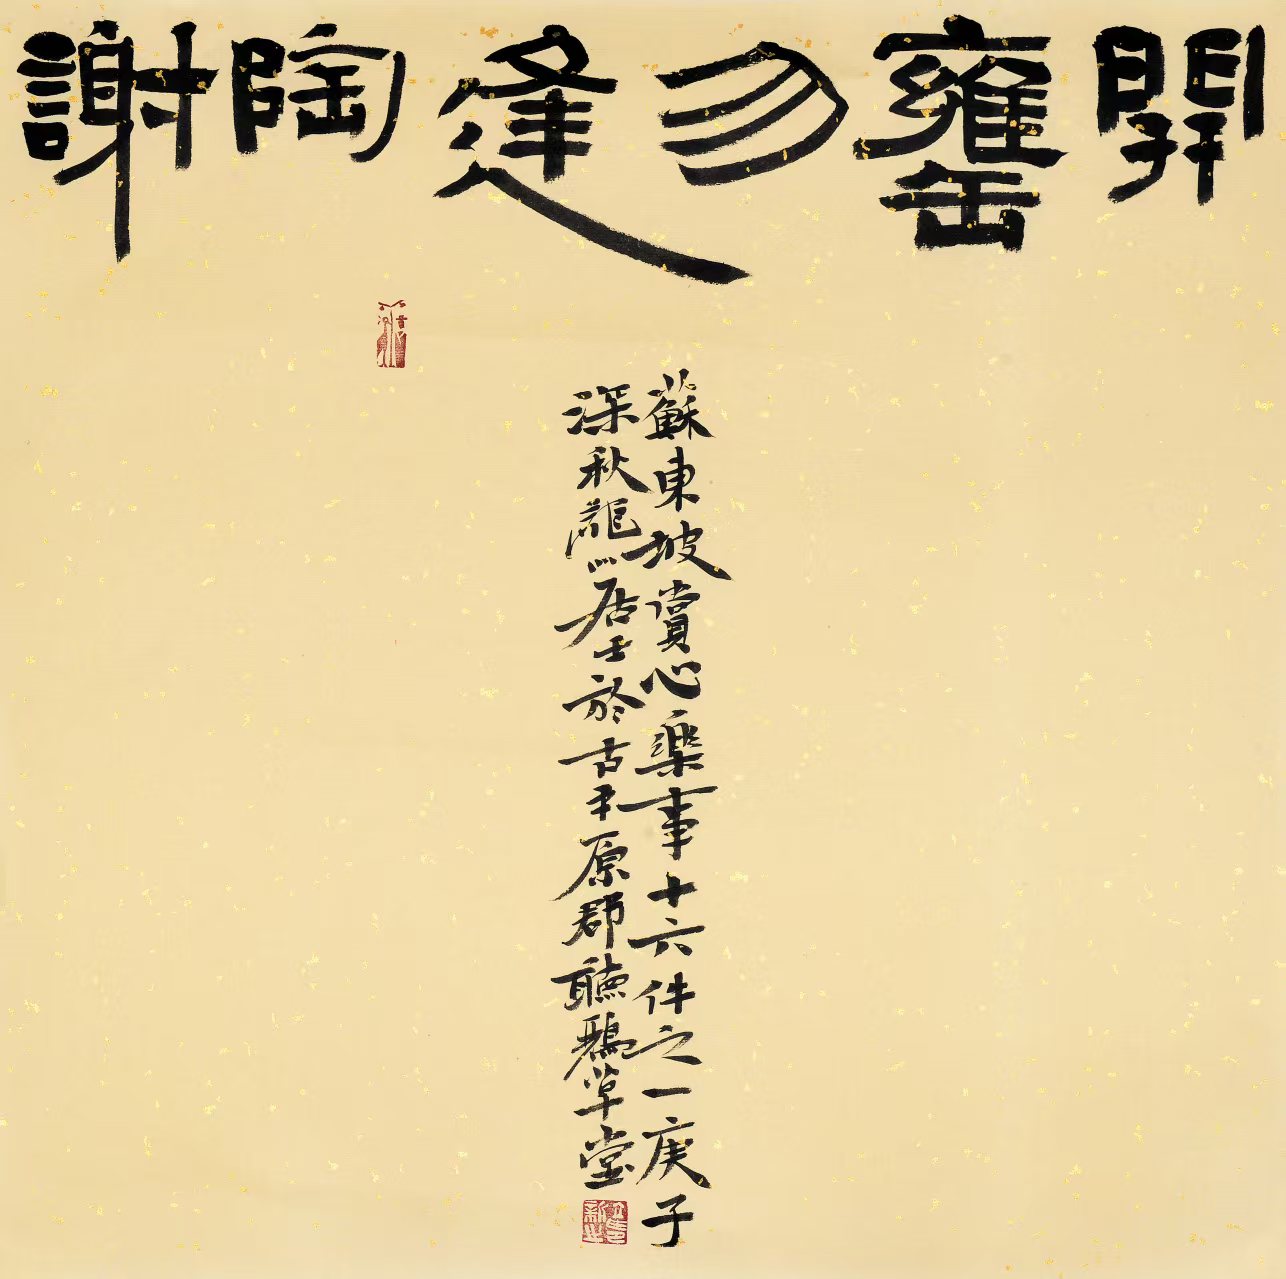 開罋勿逢陶謝
蘇東坡賞心樂事十六件之一庚子
深秋居士於古平原郡聽草堂